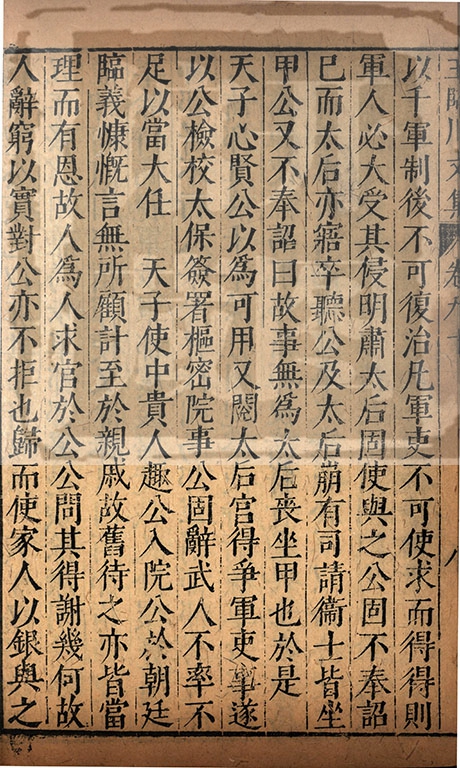 王臨川文集 卷九十 八
以千軍制後不可復治凡軍吏不可使求而得得則
軍人必大受其侵明肅太后固使與之公固不奉詔
已而太后亦寤卒聽公及太后崩有司請衞士皆坐
甲公又不奉詔曰故事無爲太后喪坐甲也於是
天子心賢公以爲可用又閱太后宮得爭軍吏事遂
以公檢校太保簽署樞密院事公固辭武人不率不
足以當大任 天子使中貴人趣公入院公於朝廷
臨義慷慨言無所顧計至於親戚故舊待之亦皆當
理而有恩故人爲人求官於公公問其得謝幾何故
人辭窮以實對公亦不拒也歸而使家人以銀與之